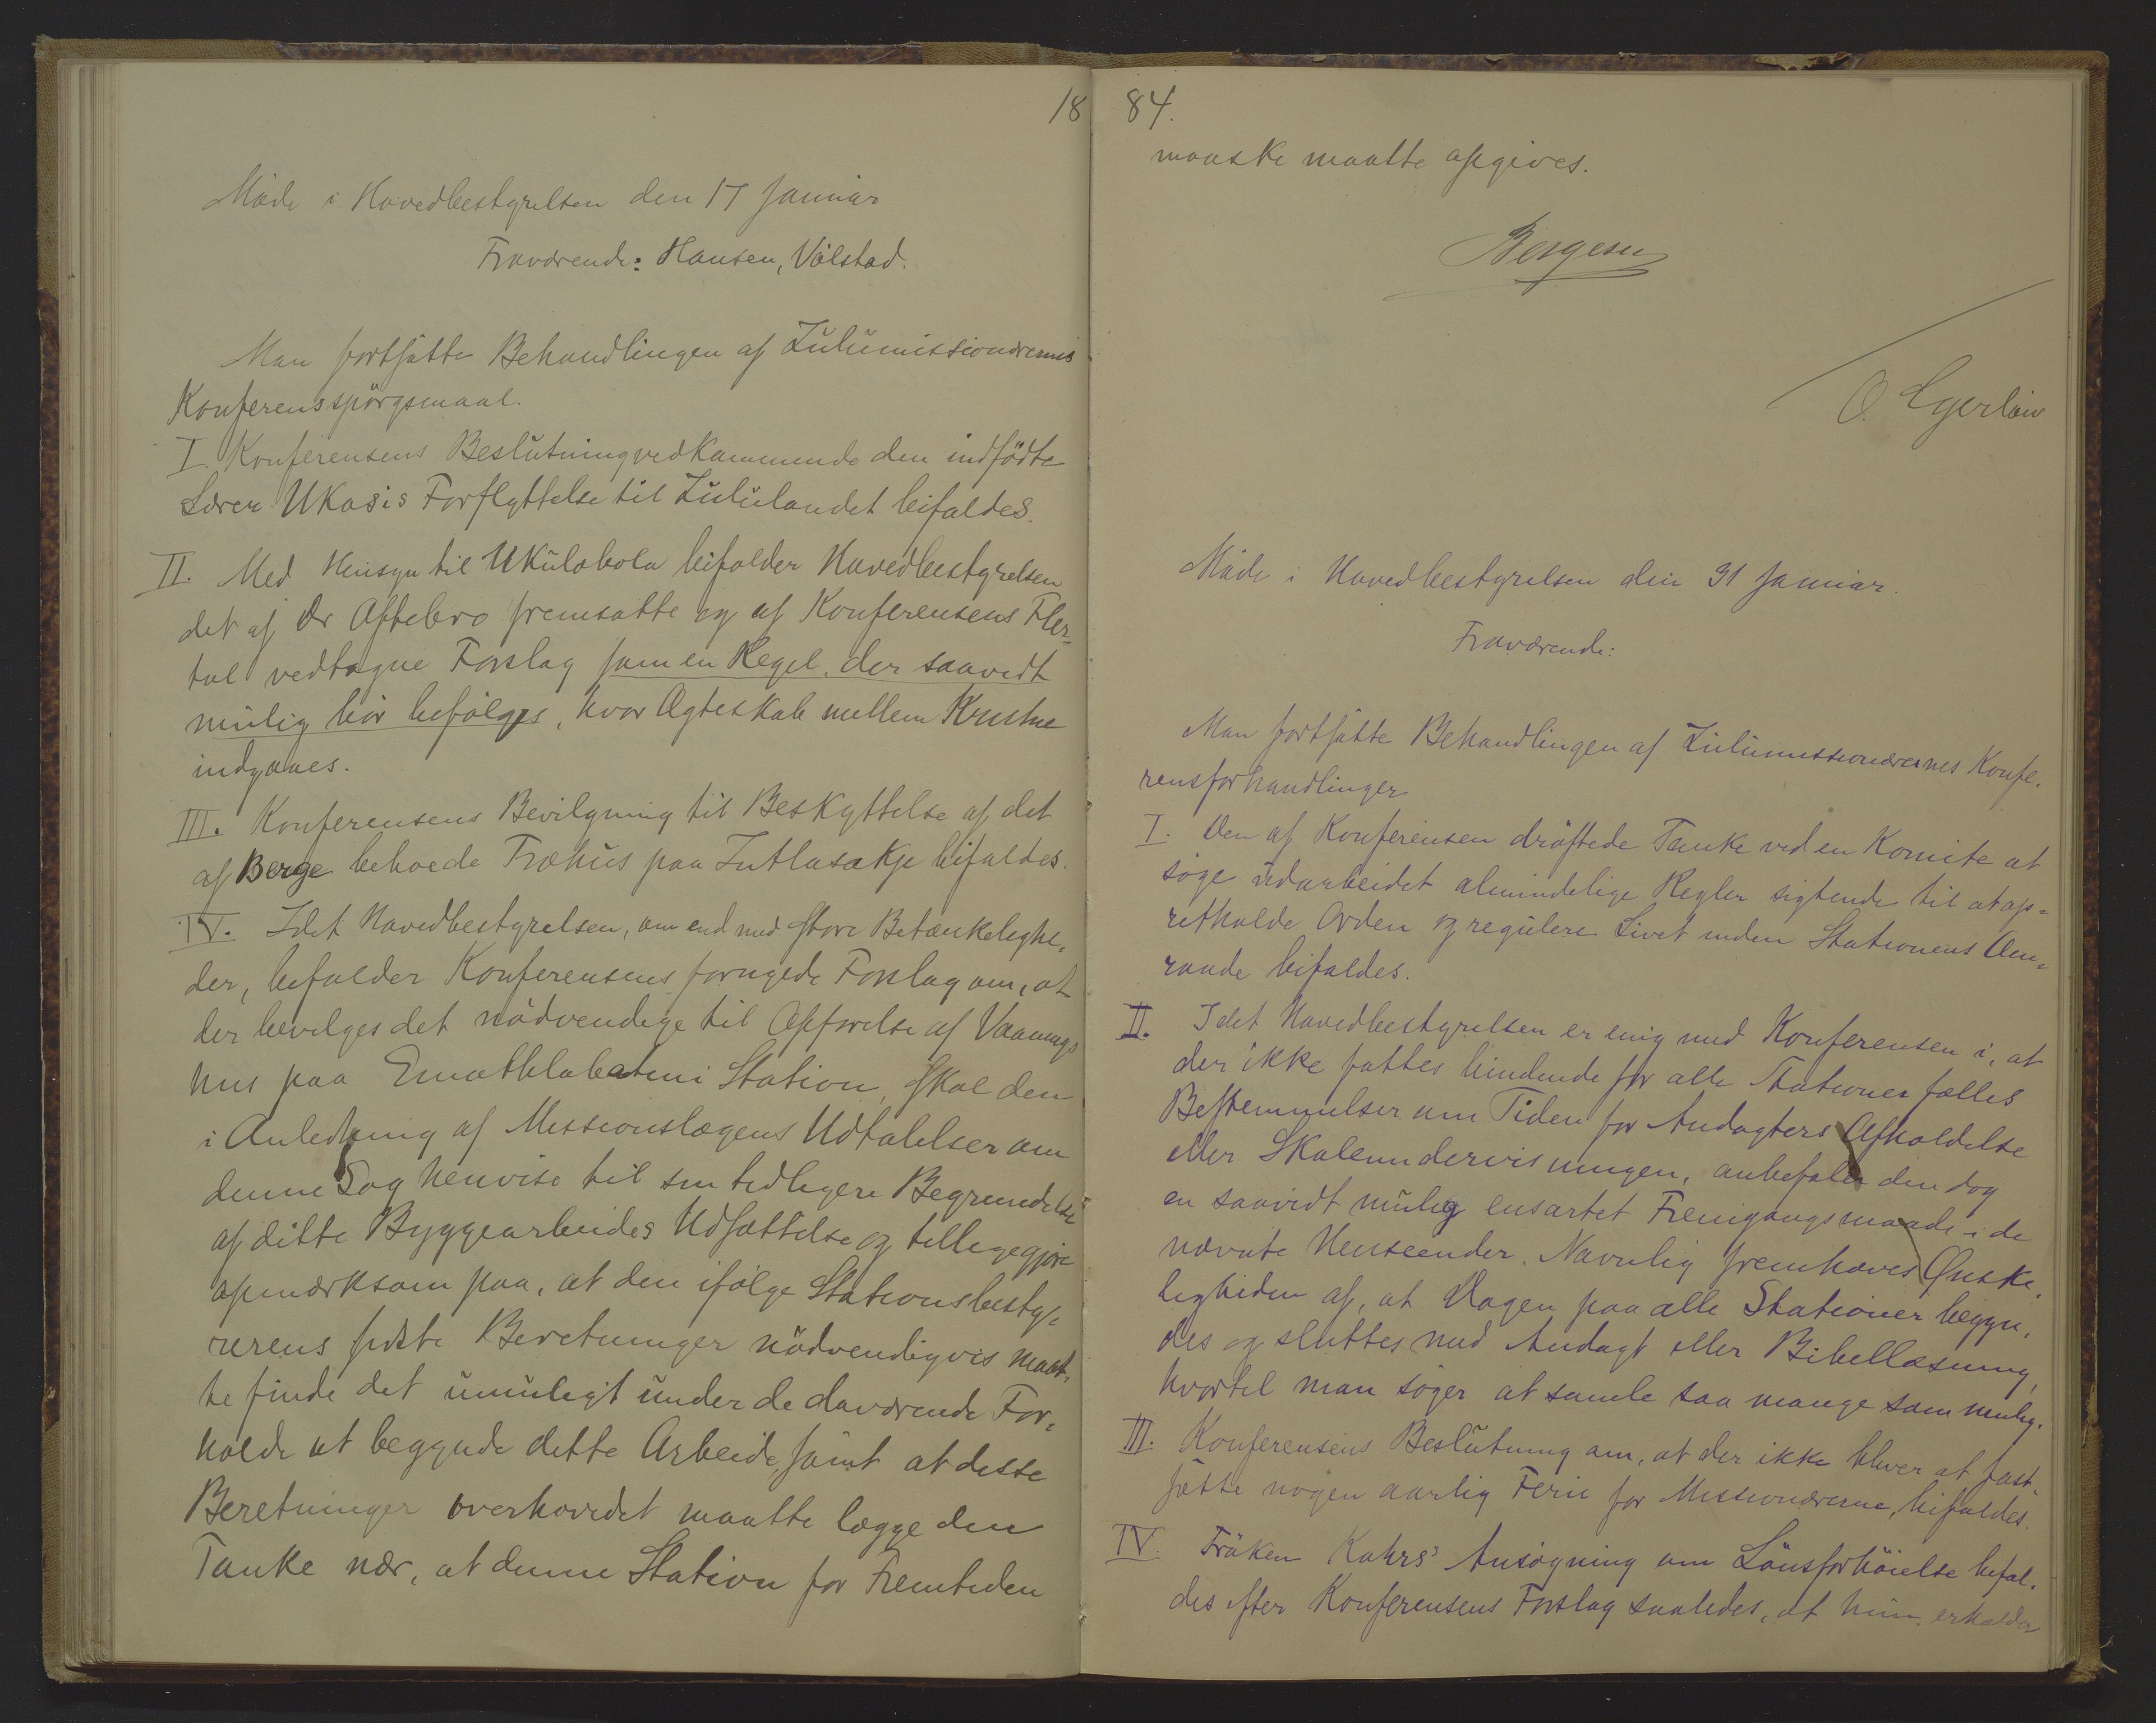 18
Møde i Hovedbestyrelsen den 17 Januar
Fraværende: Hansen, Vølstad.
Man fortsatte Behandlingen af Zulumissionærernes
Konferensspörgsmaal.
I. Konferensens Beslutning vedkommende den indfödte
Lærer UKasis Forflyttelse til Zululandet bifaldes.
II. Med Hensyn til Ukulobola bifalder Hovedbestyrelsen
det af Dr Oftebro fremsatte og af Konferensens Fler-
tal vedtagne Forslag som en Regel, der saavidt
mulig bör befölges, hvor Ægteskab mellem Kristne
indgaaes.
III. Konferensens Bevilgning til Beskyttelse af det
af Berge beboede Træhus paa Intlasakje bifaldes.
IV. Idet Hovedbestyrelsen, om end med store Betænkelighe-
der, bifalder Konferensens fornyede Forslag om, at
der bevilges det nödvendige til Opförelse af Vaanings
hus paa Emathlabatini Station, skal den
i Anledning af Missionslægens Udtalelser om
denne Sag henvise til sin tidligere Begrundelse
af dette Byggearbeides Udsættelse og tillige gjöre
opmærksom paa, at den ifölge Stationsbesty-
rerens sidste Beretninger nödvendigvis maat-
te finde det umuligt under de daværende For-
holde at begynde dette Arbeide, samt at disse
Beretninger overhovedet maatte lægge den
Tanke nær, at denne Station for Fremtiden
84.
maaske maatte opgives.
Borgesen
Møde i Hovedbestyrelsen den 31 Januar.
Fraværende:
Man fortsatte Behandlingen af Zulumissionærernes Konfe-
rensforhandlinger
I. Den af Konferensen dröftede Tanke ved en Komite at
söge udarbeidet almindelige Regler sigtende til at op-
retholde Orden og regulere Livet inden Stationens Om-
raade bifaldes.
II. Idet Hovedbestyrelsen er enig med Konferensen i, at
der ikke fattes bindende for alle Stationer fælles
Bestemmelser om Tiden for Andagters Afholdelse
eller Skoleundervisningen, anbefaler den dog
en saavidt mulig ensartet Fremgangsmaade i de
nævnte Henseender. Navnlig fremhæves Önske-
ligheden af, at Dagen paa alle Stationer begyn-
des og sluttes med Andagt eller Bibellæsning,
hvortil man söger at samle saa mange som mulig.
III. Konferensens Beslutning om, at der ikke bliver at fast-
sætte nogen aarlig Ferie for Missionærerne, bifaldes.
IV. Fröken Kahrs' Ansögning om Lönsforhöielse bifal-
des efter Konferensens Forslag saaledes, at hun erholder